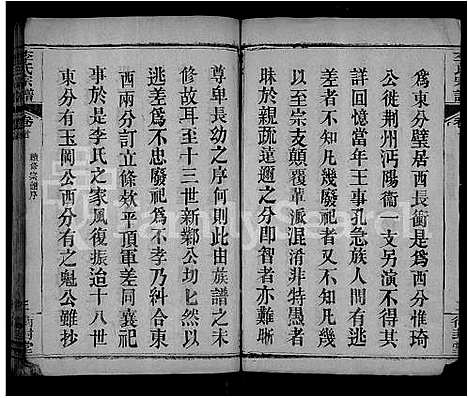 為東分璧居西長衡是為西分惟琦
公徙荆州沔陽衞一支另演不得其
詳回憶當年王事孔急族人間有逃
祀差者不知凡幾廢祀者又不知凡幾
至於宗支顛覆葷派混淆非特愚者
昧於親疏蓮邇之分即智者亦難晰
尊卑長幼之序何則此由族譜之未
修故耳至十三世新鄴公切匕然以
逃差為不忠廢祀為不孝乃糾合東
西兩分訂立條欸平頂軍差同襄祀
事於是李氏之家風復振迨十八世
東分有玉岡公西分有之魁公雖抄
李氏宗譜
卷首
續修宗譜序
FamilySearch